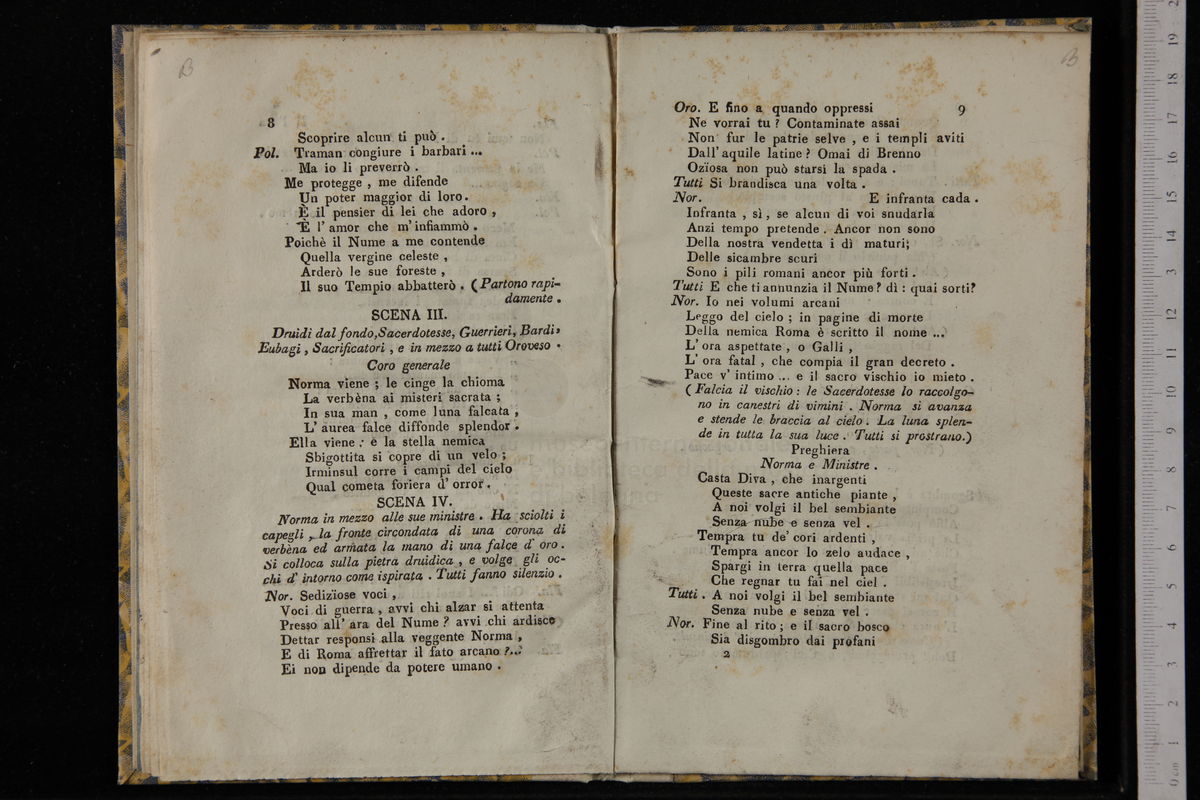 B
8
Scoprire alcun ti può .
Pol. Traman congiure i barbari ...
Ma io li preverrò .
Me protegge , me difende
Un poter maggior di loro.
È il pensier di lei che adoro ,
È l' amor che m' infiammò .
Poichè il Nume a me contende
Quella vergine celeste ,
Arderò le sue foreste ,
Il suo Tempio abbatterò . (Partono rapi-
damente .
SCENA III.
Druidi dal fondo, Sacerdotesse, Guerrieri, Bardi,
Eubagi , Sacrificatori , e in mezzo a tutti Oroveso .
Coro generale
Norma viene ; le cinge la chioma
La verbèna ai misteri sacrata ;
In sua man , come luna falcata ,
L' aurea falce diffonde splendor .
Ella viene : e la stella nemica
Sbigottita si copre di un velo ;
Irminsul corre i campi del cielo
Qual cometa foriera d' orror .
SCENA IV.
Norma in mezzo alle sue ministre . Ha sciolti i
capegli , la fronte circondata di una corona di
verbèna ed armata la mano di una falce d' oro .
Si colloca sulla pietra druidica , e volge gli oc-
chi d' intorno come ispirata . Tutti fanno silenzio .
Nor. Sedizïose voci ,
Voci di guerra , avvi chi alzar si attenta
Presso all' ara del Nume ? avvi chi ardisce
Dettar responsi alla veggente Norma ,
E di Roma affrettar il fato arcano ?...
Ei non dipende da potere umano .
B
9
Oro. E fino a quando oppressi
Ne vorrai tu ? Contaminate assai
Non fur le patrie selve , e i templi aviti
Dall' aquile latine ? Omai di Brenno
Ozïosa non può starsi la spada .
Tutti Si brandisca una volta .
Nor. E infranta cada .
Infranta , sì , se alcun di voi snudarla
Anzi tempo pretende . Ancor non sono
Della nostra vendetta i dì maturi;
Delle sicambre scuri
Sono i pili romani ancor più forti .
Tutti E che ti annunzia il Nume ? dì : quai sorti?
Nor. Io nei volumi arcani
Leggo del cielo ; in pagine di morte
Della nemica Roma è scritto il nome ...
L' ora aspettate , o Galli ,
L' ora fatal , che compia il gran decreto .
Pace v' intimo ... e il sacro vischio io mieto .
(Falcia il vischio : le Sacerdotesse lo raccolgo-
no in canestri di vimini . Norma si avanza
e stende le braccia al cielo . La luna splen-
de in tutta la sua luce . Tutti si prostrano.)
Preghiera
Norma e Ministre .
Casta Diva , che inargenti
Queste sacre antiche piante ,
A noi volgi il bel sembiante
Senza nube e senza vel .
Tempra tu de' cori ardenti ,
Tempra ancor lo zelo audace ,
Spargi in terra quella pace
Che regnar tu fai nel ciel .
Tutti . A noi volgi il bel sembiante
Senza nube e senza vel .
Nor. Fine al rito ; e il sacro bosco
Sia disgombro dai profani
2
0 cm 1 2 3 4 5 6 7 8 9 10 11 12 13 14 15 16 17 18 19